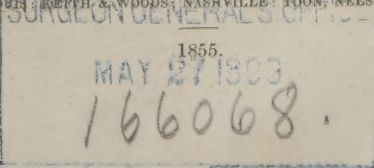 KEITH & WOODS; NASHVILLE: TOON, NELS
SURGEON GENERAL'S OFFICE
1855.
MAY 27 1903
166068.